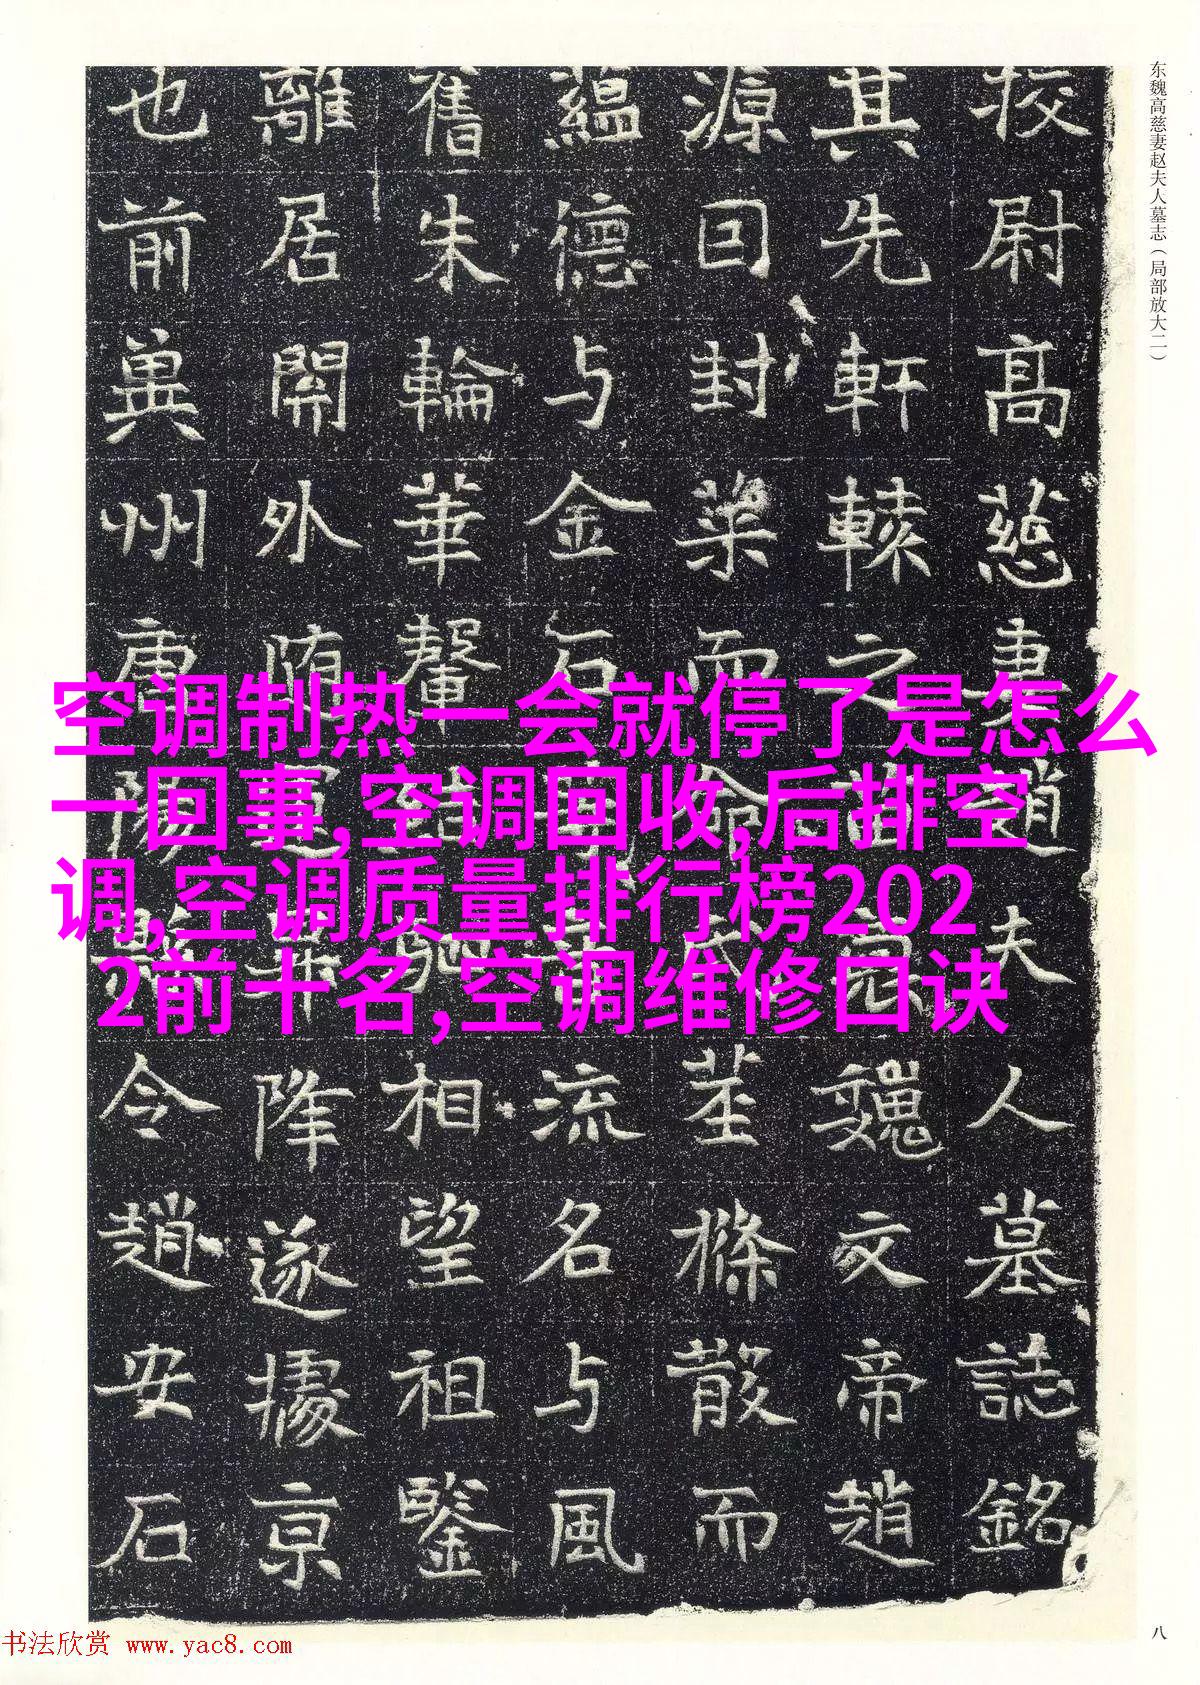 东魏高慈妻赵夫人墓志（局部放大二）
挍尉高慈妻趙夫人墓誌銘
其先軒轅之苗魏文帝趙
源囙封而命氏茎條散而
蘊德与金石流名与風
舊朱輪華相望祖鑒
離居開外降遂據京
也前兾州唐陽令趙安石
空调制热一会就停了是怎么
一回事,空调回收,后排空
调,空调质量排行榜202
2前十名,空调维修口诀
八
书法欣赏 www.yac8.com